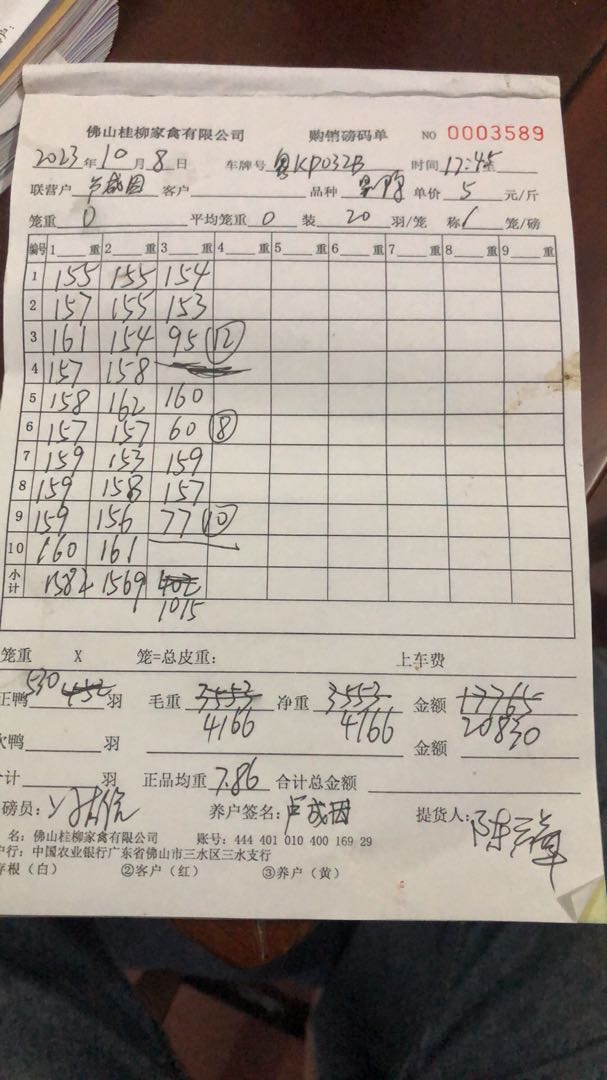 佛山桂柳家禽有限公司 购销磅码单 NO 0003589
2023年10月8日 车牌号 粤KP032B 时间 17:45
联营户 卢成因 客户 品种 单价 5 元/斤
笼重 0 平均笼重 0 装 20 羽/笼 称 1 笼/磅
编号 1 重 2 重 3 重 4 重 5 重 6 重 7 重 8 重 9 重
1 155 155 154
2 157 155 153
3 161 154 95 12
4 157 158
5 158 162 160
6 157 157 60 8
7 159 153 159
8 159 158 157
9 159 156 77 10
10 160 161
小计 1582 1569 402
1015
笼重 X 笼=总皮重: 上车费
530
正鸭 452 羽 毛重 3553 净重 3553 金额 17765
4166 4166 20830
次鸭 羽 金额
计 羽 正品均重 7.86 合计总金额
磅员: 养户签名: 卢成因 提货人:
名: 佛山桂柳家禽有限公司 账号: 444 401 010 400 169 29
户行: 中国农业银行广东省佛山市三水区三水支行
存根(白) ②客户(红) ③养户(黄)